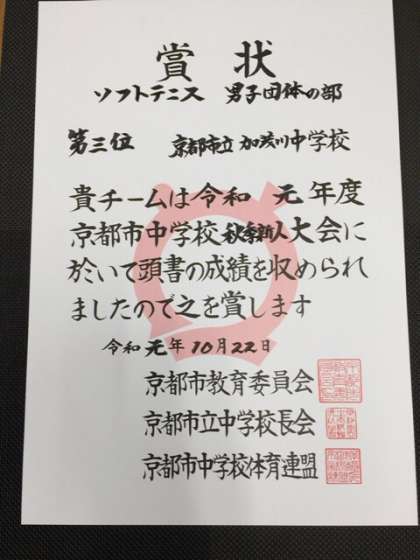 賞状
ソフトテニス 男子団体の部
第三位 京都市立 加茂川中学校
貴チームは令和 元 年度
京都市中学校秋季新人大会に
於いて頭書の成績を収められ
ましたので之を賞します
令和 元 年 10 月 22 日
京都市教育委員会
京都市立中学校長会
京都市中学校体育連盟